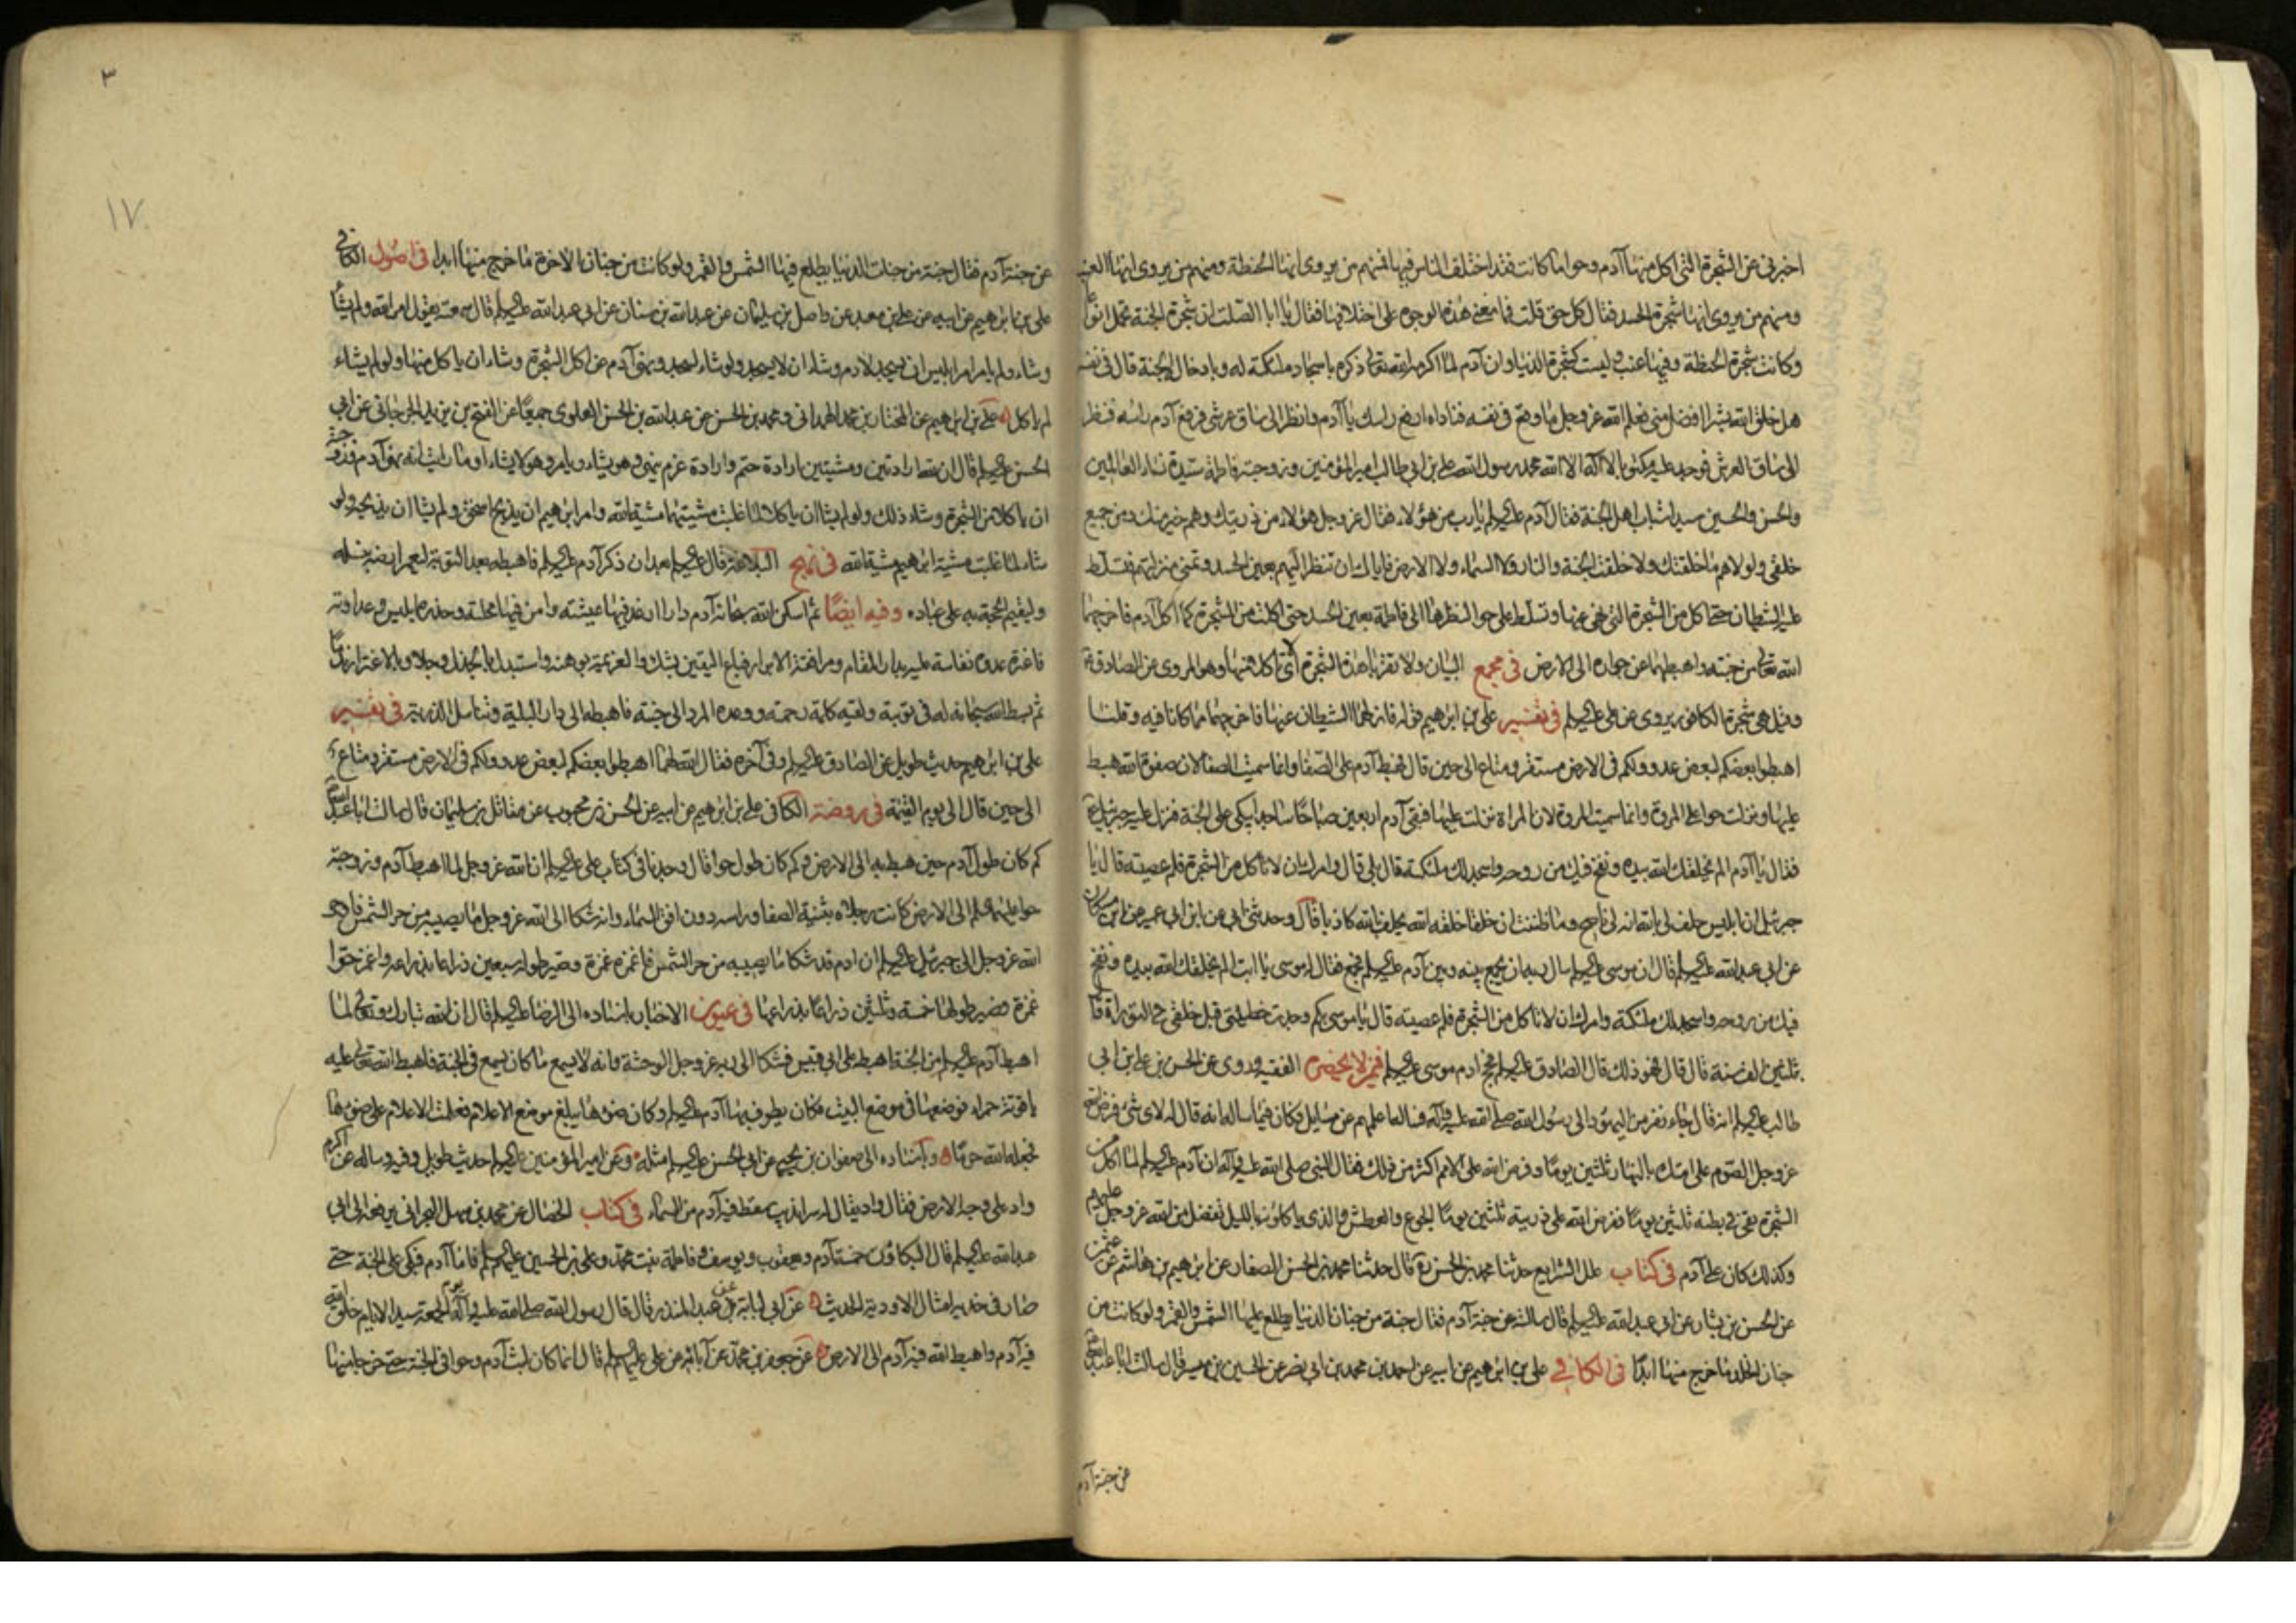 اخبرنى عن الشجرة التى اكل منها آدم وحوا ما كانت فقد اختلف الناس فيها فمنهم من يروى انها الحنطة ومنهم من يروى انها العنب
ومنهم من يروى انها شجرة الحسد فقال كل ذلك حق قلت فما معنى هذه الوجوه على اختلافها فقال يا ابا الصلت ان شجرة الجنة تحمل انواعا
وكانت شجرة الحنطة وفيها عنب وليست كشجرة الدنيا وان آدم لما اكرمه الله تعالى ذكره باسجاد ملئكته له وبادخاله الجنة قال فى نفسه
هل خلق الله بشرا افضل منى فعلم الله عز وجل ما وقع فى نفسه فناداه ارفع راسك يا آدم وانظر الى ساق عرشى فرفع آدم راسه فنظر
الى ساق العرش فوجد عليه مكتوبا لا آله الا الله محمد رسول الله على بن ابى طالب امير المؤمنين وزوجته فاطمة سيدة نساء العالمين
والحسن والحسين سيدا شباب اهل الجنة فقال آدم عليه السلم يا رب من هؤلاء فقال عز وجل هؤلاء من ذريتك وهم خير منك ومن جميع
خلقى ولولاهم ما خلقتك ولا خلقت الجنة والنار ولا السماء ولا الارض فاياك ان تنظر اليهم بعين الحسد وتمنى منزلتهم فتسلط
عليه الشيطان حتى اكل من الشجرة التى نهى عنها وتسلط على حوا لنظرها الى فاطمة بعين الحسد حتى اكلت من الشجرة كما اكل آدم فاخرجهما
الله تعالى من جنته واهبطهما عن جواره الى الارض فى مجمع البيان ولا تقربا هذه الشجرة اى لا تاكلا منها وهو المروى عن الصادق ع
وقيل هى شجرة الكافور يروى عن على عليه السلم فى تفسير على بن ابرهيم قوله فازلهما الشيطان عنها فاخرجهما مما كانا فيه وقلنا
اهبطوا بعضكم لبعض عدو ولكم فى الارض مستقر ومتاع الى حين قال فهبط آدم على الصفا وانما سميت الصفا لان صفوة الله هبط
عليها ونزلت حوا على المروة وانما سميت المروة لان المراة نزلت عليها فبقى آدم اربعين صباحا ساجدا يبكى على الجنة فنزل عليه جبرئيل ع
فقال يا آدم الم يخلقك الله بيده ونفخ فيك من روحه واسجد لك ملئكته قال بلى قال وامرك ان لا تاكل من الشجرة فلم عصيته قال يا
جبرئيل ان ابليس حلف لى بالله انه لى ناصح وما ظننت ان خلقا خلقه الله يحلف بالله كاذبا قال وحدثنى ابى عن ابن ابى عمير عن ابن مسكان
عن ابى عبد الله عليه السلم قال ان موسى عليه السلم سال ربه ان يجمع بينه وبين آدم عليه السلم فجمع فقال له موسى يا ابت الم يخلقك الله بيده ونفخ
فيك من روحه واسجد لك ملئكته وامرك ان لا تاكل من الشجرة فلم عصيته قال يا موسى بكم وجدت خطيئتى قبل خلقى فى التوراة قا
بثلثين الف سنة قال قال فهو ذلك قال الصادق عليه السلم فحج آدم موسى عليه السلم فى من لا يحضره الفقيه وروى عن الحسن بن على ابن ابى
طالب عليه السلم انه قال جاء نفر من اليهود الى رسول الله صلى الله عليه وآله فساله اعلمهم عن مسايل فكان فيما ساله انه قال له لاى شئ فرض الله
عز وجل الصوم على امتك بالنهار ثلثين يوما وفرض الله على الامم اكثر من ذلك فقال النبى صلى الله عليه وآله ان آدم عليه السلم لما اكل من
الشجرة بقى فى بطنه ثلثين يوما ففرض الله على ذريته ثلثين يوما الجوع والعطش والذى ياكلونه بالليل تفضل من الله عز وجل عليهم
وكذلك كان على آدم فى كتاب علل الشرايع حدثنا محمد بن الحسن ره قال حدثنا محمد بن الحسن الصفار عن ابرهيم بن هاشم عن عثمن
عن الحسن بن بشار عن ابى عبد الله عليه السلم قال سالته عن جنة آدم فقال جنة من جنان الدنيا يطلع عليها الشمس والقمر ولو كانت من
جنان الخلد ما خرج منها ابدا فى الكافى على بن ابرهيم عن ابيه عن احمد بن محمد بن ابى نصر عن الحسين بن ميسر قال سالت ابا عبد الله ع
عن جنة آدم
٣
١٧
عن جنة آدم فقال جنة من جنات الدنيا يطلع فيها الشمس والقمر ولو كانت من جنان الاخرة ما خرج منها ابدا فى اصول الكافى
على بن ابرهيم عن ابيه عن على بن معبد عن واصل بن سليمان عن عبد الله بن سنان عن ابى عبد الله عليه السلم قال سمعته يقول امر الله ولم يشأ
وشاء ولم يامر امر ابليس ان يسجد لادم وشاء ان لا يسجد ولو شاء لسجد ونهى آدم عن اكل الشجرة وشاء ان ياكل منها ولو لم يشاء
لم ياكل على بن ابرهيم عن المختار بن محمد الهمدانى ومحمد بن الحسن عن عبد الله بن الحسن العلوى جميعا عن الفتح بن يزيد الجرجانى عن ابى
الحسن عليه السلم قال ان لله ارادتين ومشيتين ارادة حتم وارادة عزم ينهى وهو يشاء ويامر وهو لا يشاء او ما رايت انه نهى آدم وزوجته
ان ياكلا من الشجرة وشاء ذلك ولو لم يشا ان ياكلا لما غلبت مشيتهما مشية الله وامر ابرهيم ان يذبح اسحق ولم يشا ان يذبحه ولو
شاء لما غلبت مشية ابرهيم مشية الله فى نهج البلاغة قال عليه السلم بعد ان ذكر آدم عليه السلم فاهبطه بعد التوبة ليعمر ارضه بنسله
وليقيم الحجة به على عباده وفيه ايضا ثم اسكن الله سبحانه آدم دارا ارغد فيها عيشته وامن فيها محلته وحذره ابليس وعداوته
فاغتره عدوه نفاسة عليه بدار المقام ومرافقة الابرار فباع اليقين بشكه والعزيمة بوهنه واستبدل بالجذل وجلا وبالاغترار ندما
ثم بسط الله سبحانه له فى توبته ولقيه كلمة رحمته ووعده المرد الى جنته فاهبطه الى دار البلية وتناسل الذرية فى تفسير
على بن ابرهيم حديث طويل عن الصادق عليه السلم وفى آخره فقال الله لهما اهبطوا بعضكم لبعض عدو ولكم فى الارض مستقر ومتاع
الى حين قال الى يوم القيمة فى روضة الكافى على بن ابرهيم عن ابيه عن الحسن بن محبوب عن مقاتل بن سليمان قال سالت ابا عبد الله ع
كم كان طول آدم حين هبط به الى الارض وكم كان طول حوا قال وجدنا فى كتاب على عليه السلم ان الله عز وجل لما اهبط آدم وزوجته
حوا عليهما السلم الى الارض كانت رجلاه بثنية الصفا وراسه دون افق السماء وانه شكا الى الله عز وجل ما يصيبه من حر الشمس فاوحى
الله عز وجل الى جبرئيل عليه السلم ان ادم قد شكا ما يصيبه من حر الشمس فاغمزه غمزة وصير طوله سبعين ذراعا بذراعه واغمز حوا
غمزة فصير طولها خمسة وثلثين ذراعا بذراعها فى عيون الاخبار باسناده الى الرضا عليه السلم قال ان الله تبارك وتعالى لما
اهبط آدم عليه السلم من الجنة اهبط على ابى قبيس فشكا الى ربه عز وجل الوحشة وانه لا يسمع ما كان يسمع فى الجنة فاهبط الله تعالى عليه
ياقوتة حمراء فوضعها فى موضع البيت فكان يطوف بها آدم عليه السلم وكان ضوءها يبلغ موضع الاعلام فعلمت الاعلام على ضوءها
فجعله الله حرما وباسناده الى صفوان بن يحيى عن ابى الحسن عليه السلم مثله وعن امير المؤمنين عليه السلم حديث طويل وفيه وساله عن اكرم
واد على وجه الارض فقال واد يقال له سرانديب سقط فيه آدم من السماء فى كتاب الخصال عن محمد بن سهل البحرانى يرفعه الى ابى
عبد الله عليه السلم قال البكاؤن خمسة آدم ويعقوب ويوسف وفاطمة بنت محمد وعلى بن الحسين عليهم السلم فاما آدم فبكى على الجنة حتى
صار فى خديه امثال الاودية الحديث عن ابى لبابة بن عبد المنذر قال قال رسول الله صلى الله عليه وآله الجمعة سيد الايام خلق الله
فيه آدم واهبط الله فيه آدم الى الارض عن جعفر بن محمد عن آبائه عن على عليهم السلم قال انما كان لبث آدم وحوا فى الجنة حتى خرجا منها